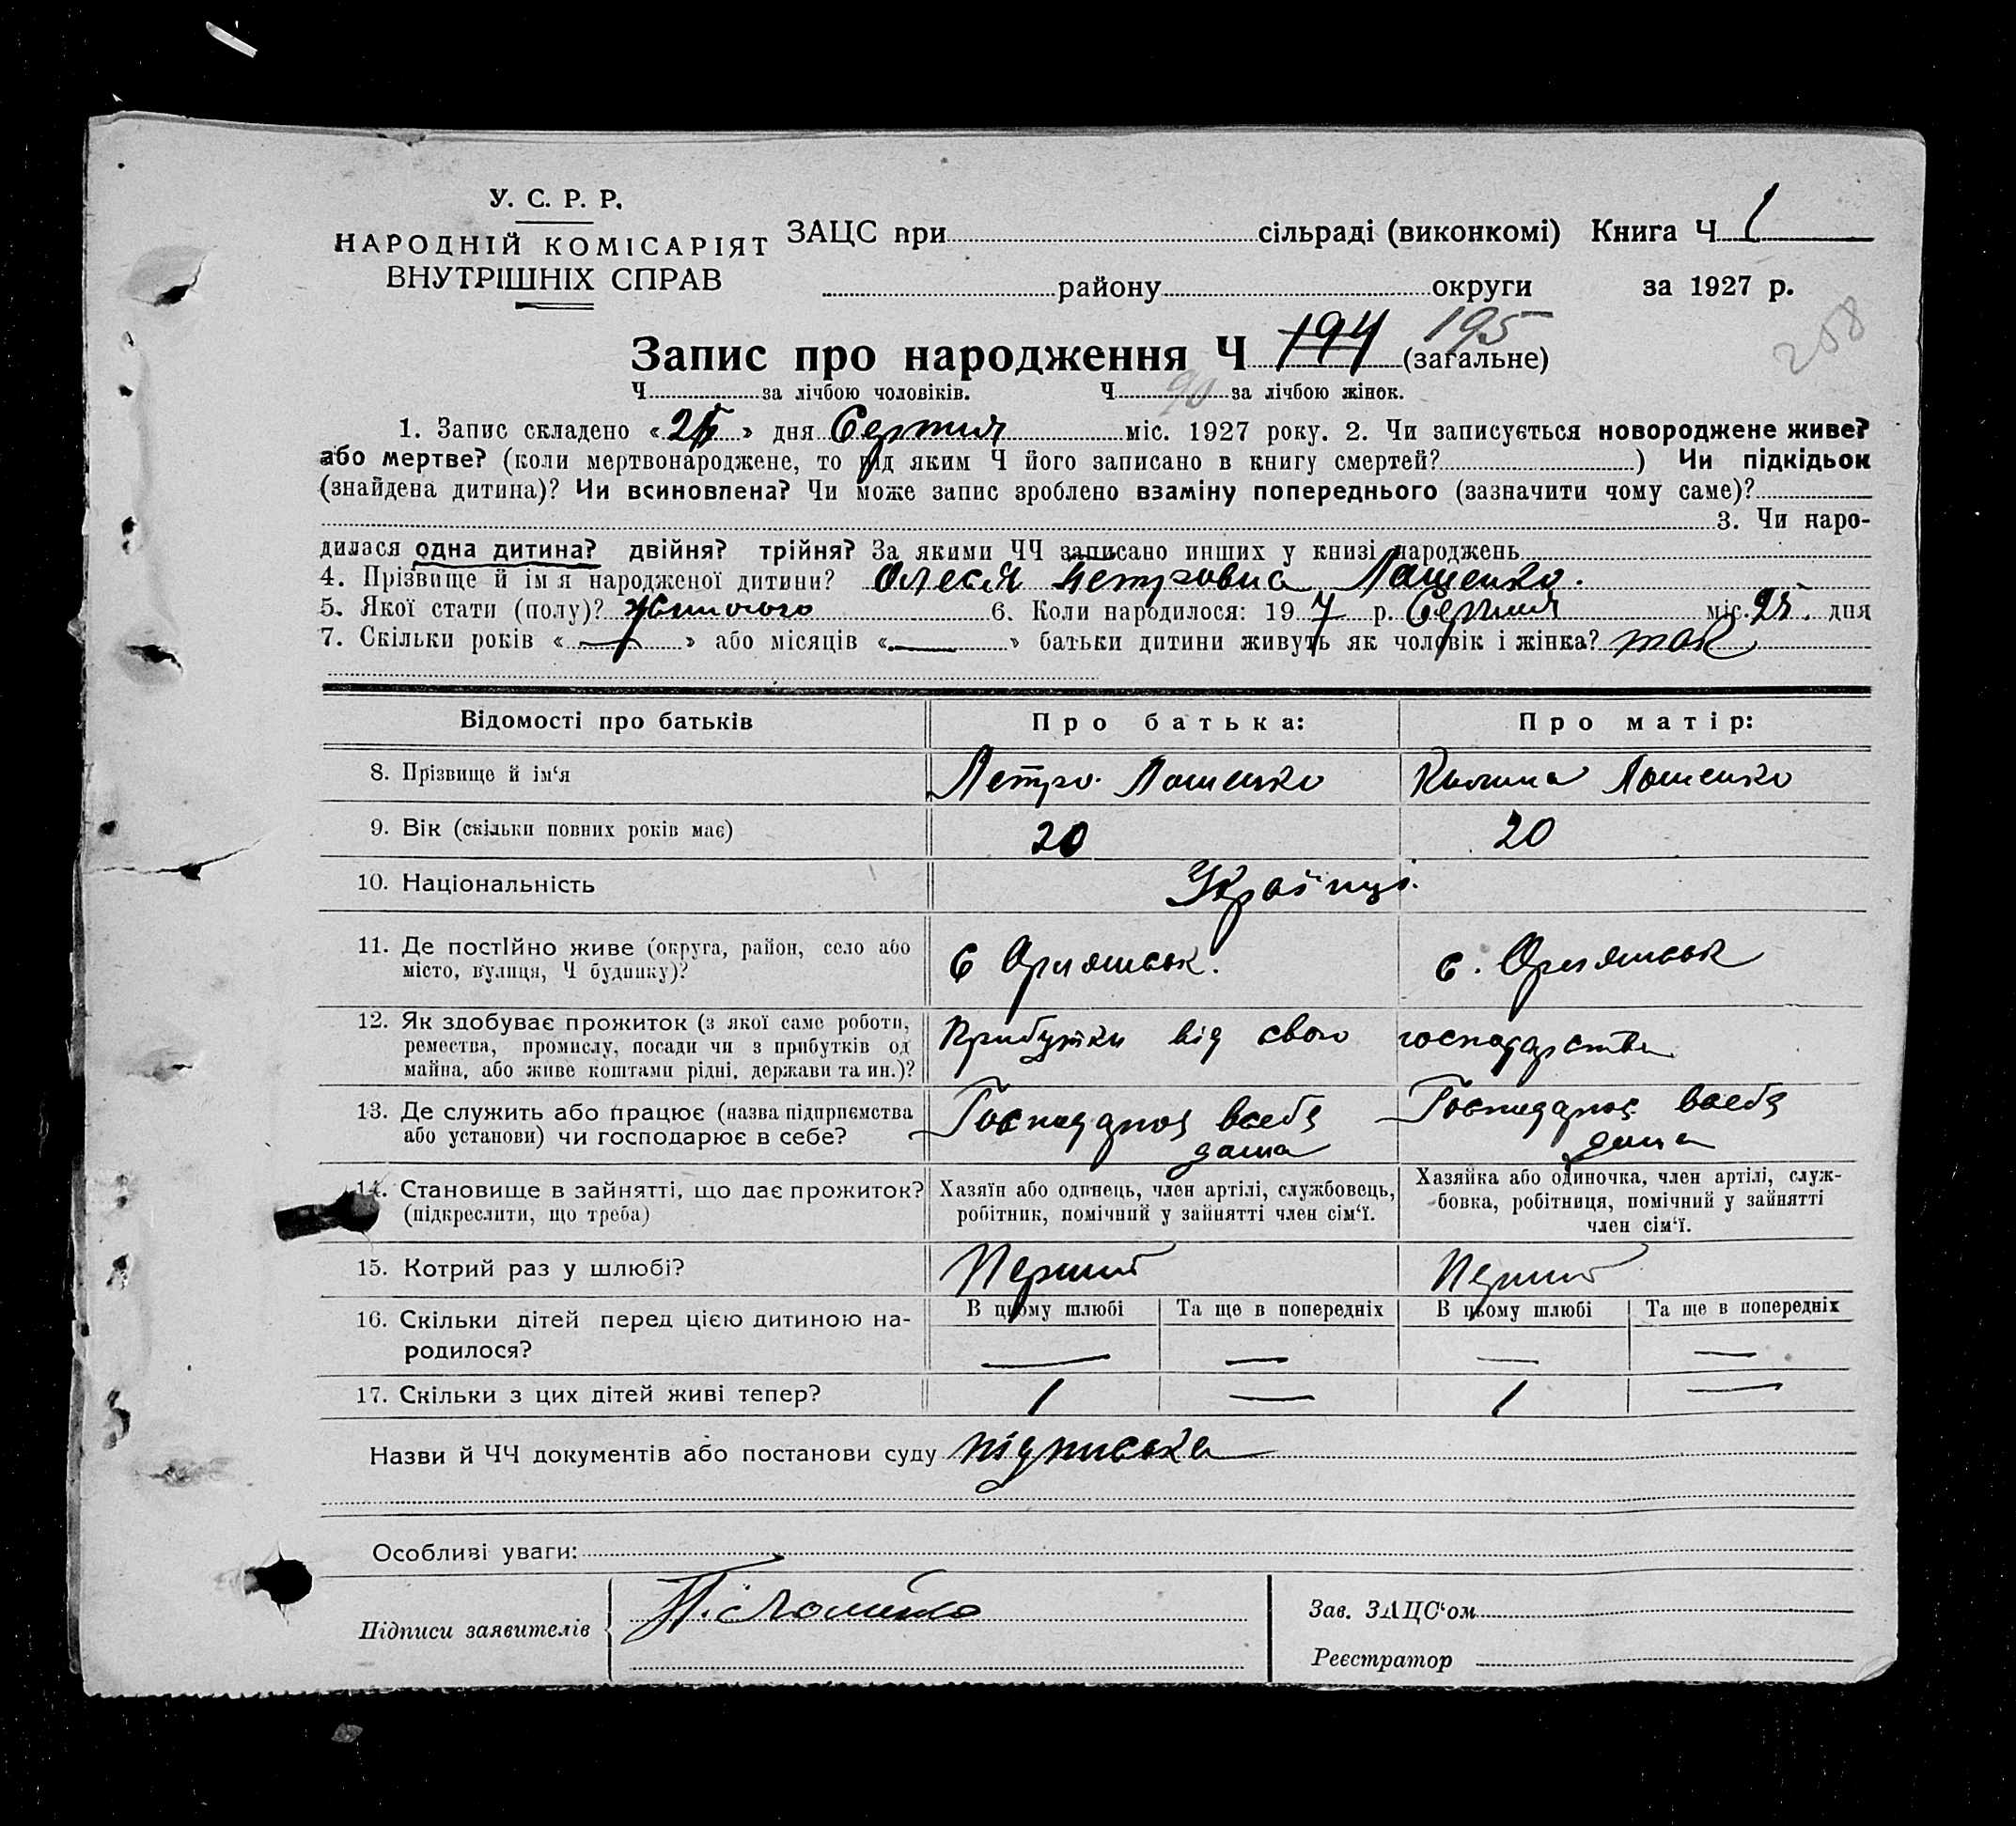 У. С. Р. Р.
НАРОДНІЙ КОМІСАРІЯТ
ВНУТРІШНІХ СПРАВ
ЗАЦС при сільраді (виконкомі) Книга Ч 1
району округи за 1927 р.
258
Запис про народження Ч 194 195 (загальне)
Ч за лічбою чоловіків. Ч 90 за лічбою жінок.
1. Запис складено « » дня Серпня міс. 1927 року. 2. Чи записується новороджене живе?
або мертве? (коли мертвонароджене, то під яким Ч його записано в книгу смертей? ) Чи підкідьок
(знайдена дитина)? Чи всиновлена? Чи може запис зроблено взаміну попереднього (зазначити чому саме)?
3. Чи наро-
дилася одна дитина? двійня? трійня? За якими ЧЧ записано инших у книзі народжень
4. Прізвище й ім'я народженої дитини? Олеся Петровна Лащенко.
5. Якої стати (полу)? Жіночого 6. Коли народилося: 19 7 р. Серпня міс. 25. дня
7. Скільки років « — » або місяців « — » батьки дитини живуть як чоловік і жінка? так
Відомості про батьків Про батька: Про матір:
8. Прізвище й ім‘я Петро Лашенко Килина Лашенко
9. Вік (скільки повних років має) 20 20
10. Національність Українці.
11. Де постІйно живе (округа, район, село або
місто, вулиця, Ч будинку)?
с с.
12. Як здобуває прожиток (з якої саме роботи,
ремества, промислу, посади чи з прибутків од
майна, або живе коштами рідні, держави та ин.)?
Прибутки від свого господарства
13. Де служить або працює (назва підприємства
або установи) чи господарює в себе?
Господарює всебя дома Господарює всебя дома
14. Становище в зайнятті, що дає прожиток?
(підкреслити, що треба)
Хазяїн або одинець, член артілі, службовець,
робітник, помічний у зайнятті член сім‘ї.
Хазяйка або одиночка, член артілі, служ-
бовка, робітниця, помічний у зайнятті
член сім‘ї.
15. Котрий раз у шлюбі? Перший Перший
В цьому шлюбі Та ще в попередніх В цьому шлюбі Та ще в попередніх
16. Скільки дітей перед цією дитиною на-
родилося? — — — —
17. Скільки з цих дітей живі тепер? 1 — 1 —
Назви й ЧЧ документів або постанови суду підписька
Особливі уваги:
Підписи заявителів
Зав. ЗАЦС‘ом
Реєстратор